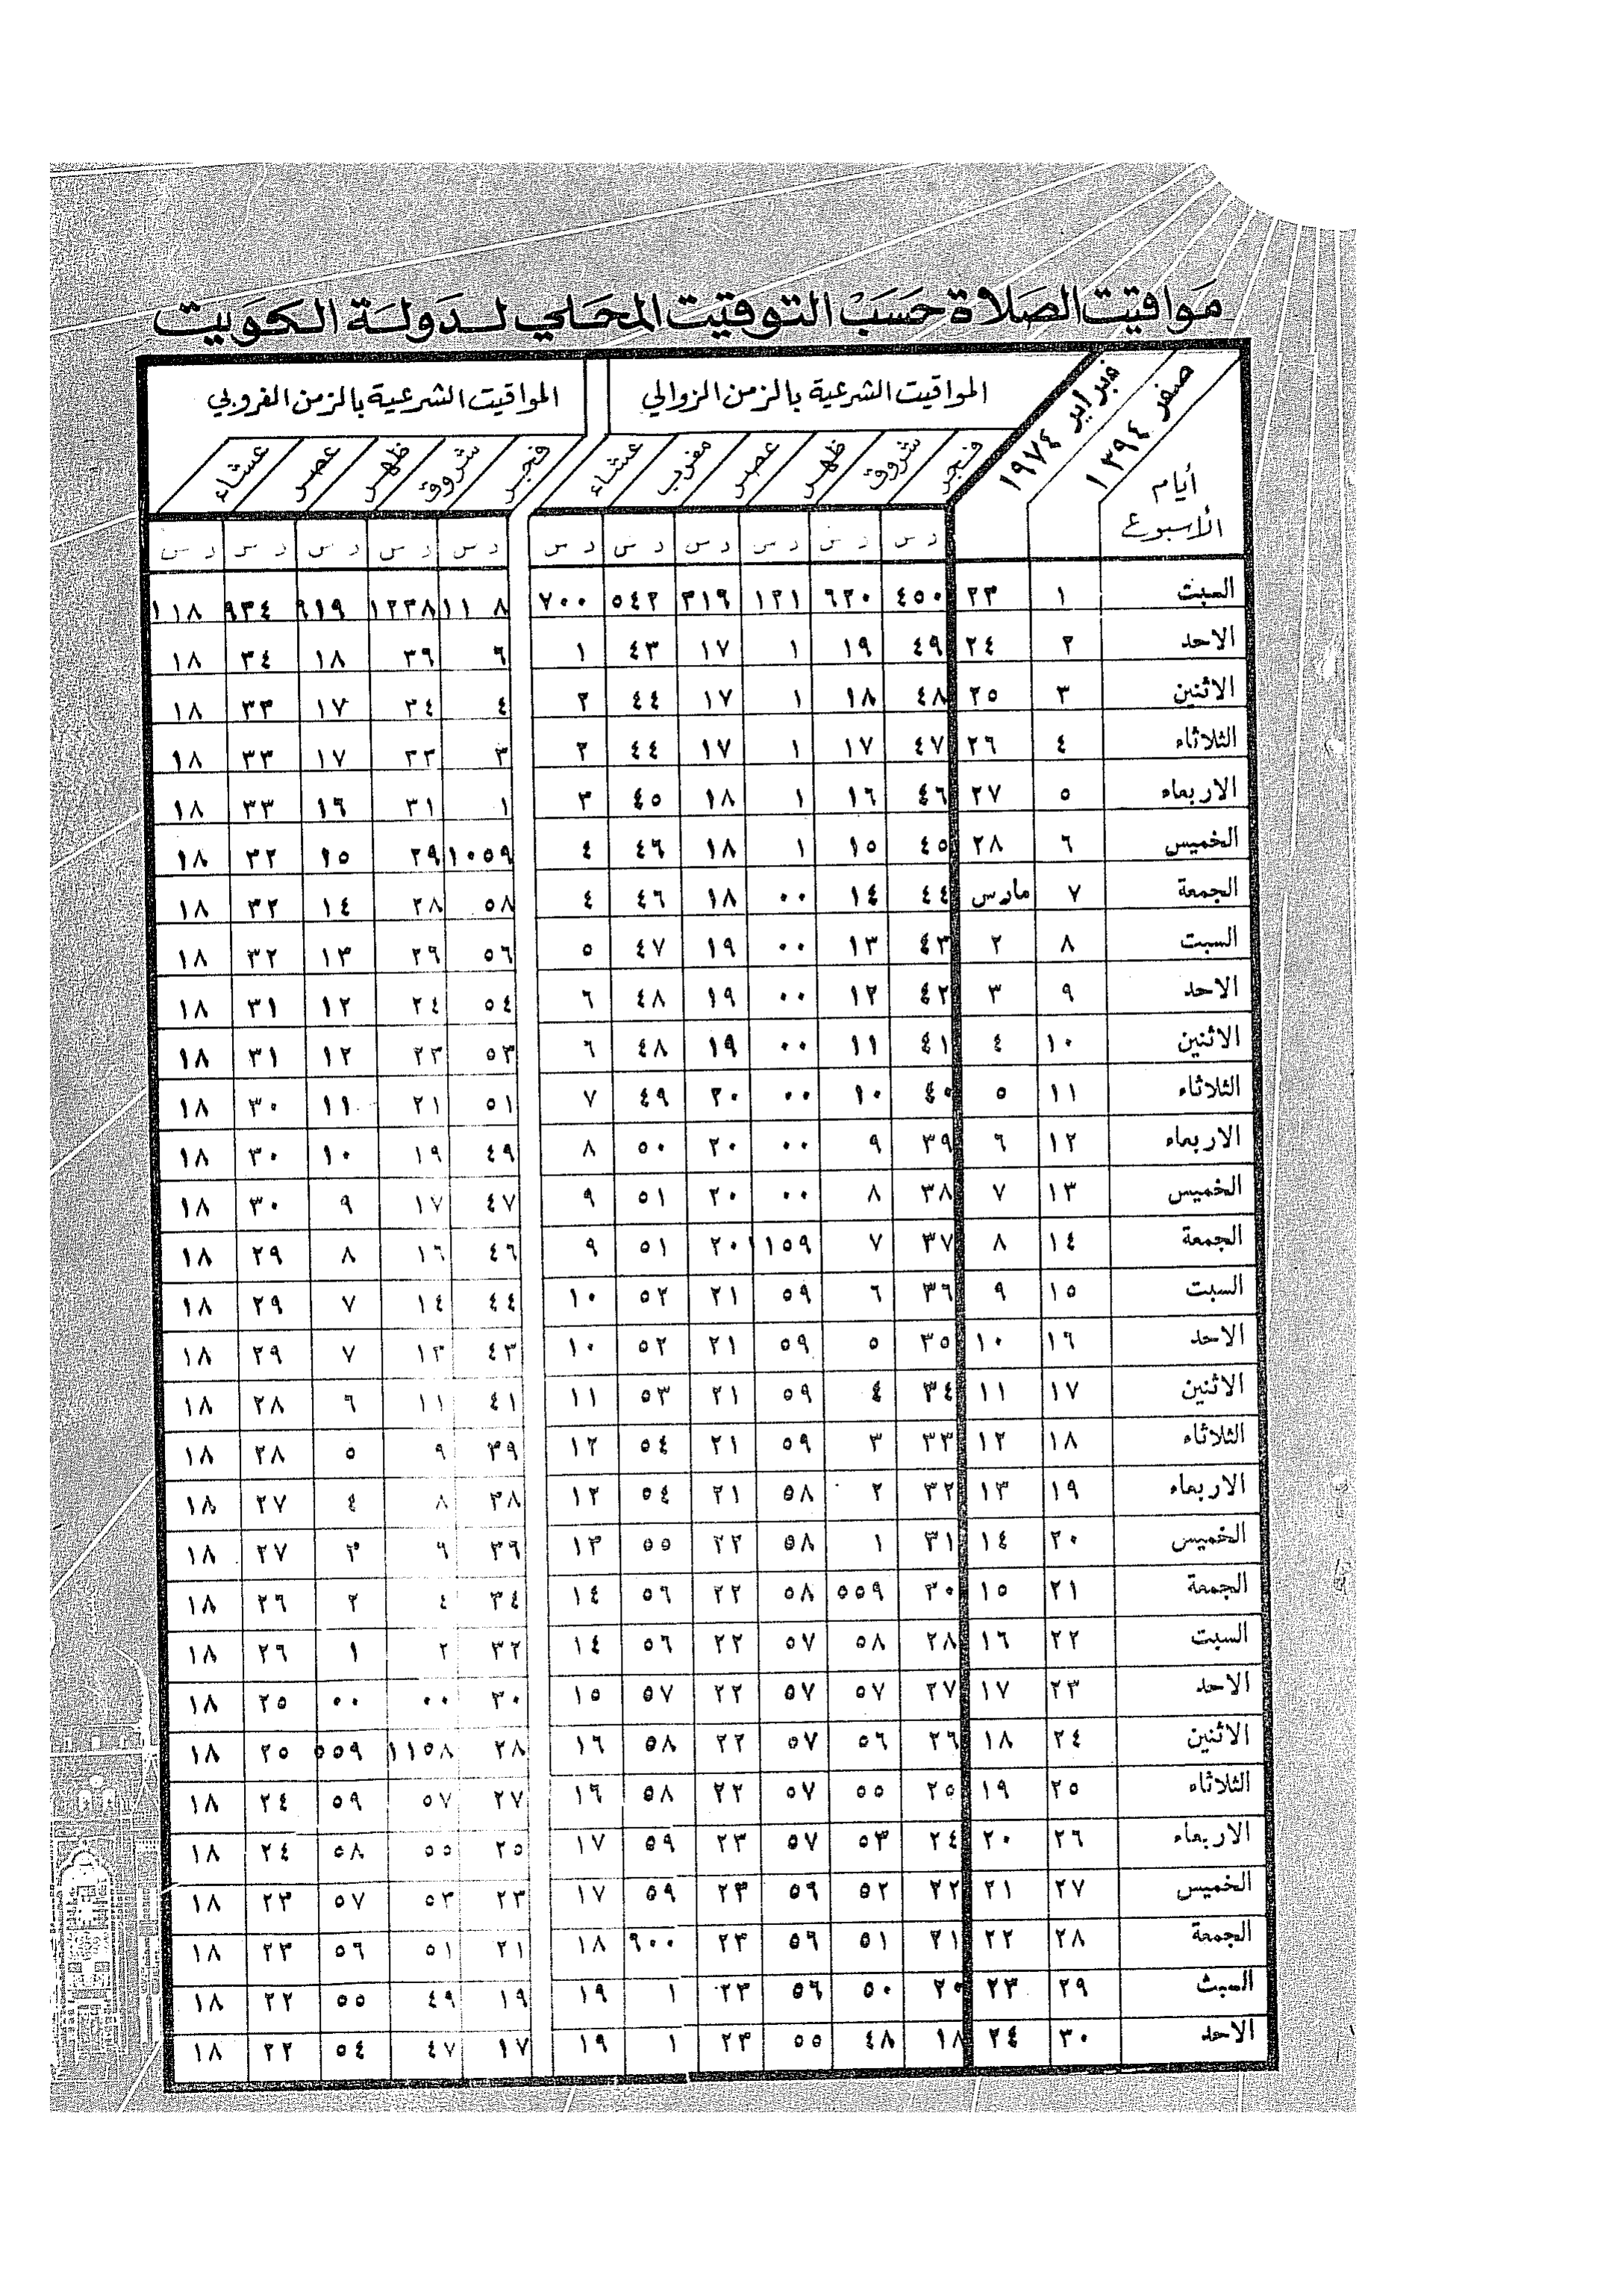 مواقيت الصلاة حسب التوقيت المحلي لدولة الكويت
أيام الأسبوع صفر ١٣٩٤ فبراير ١٩٧٤ المواقيت الشرعية بالزمن الزوالي المواقيت الشرعية بالزمن الغروبي
فجر شروق ظهر عصر مغرب عشاء فجر شروق ظهر عصر عشاء
د س د س د س د س د س د س د س د س د س د س د س
السبت ١ ٢٣ ٤٥٠ ٦٢٠ ١٢١ ٣١٩ ٥٤٢ ٧٠٠ ١١ ٨ ١٢٣٨ ٦١٩ ٩٣٤ ١١٨
الاحد ٢ ٢٤ ٤٩ ١٩ ١ ١٧ ٤٣ ١ ٦ ٣٦ ١٨ ٣٤ ١٨
الاثنين ٣ ٢٥ ٤٨ ١٨ ١ ١٧ ٤٤ ٢ ٤ ٣٤ ١٧ ٣٣ ١٨
الثلاثاء ٤ ٢٦ ٤٧ ١٧ ١ ١٧ ٤٤ ٢ ٣ ٣٣ ١٧ ٣٣ ١٨
الاربعاء ٥ ٢٧ ٤٦ ١٦ ١ ١٨ ٤٥ ٣ ١ ٣١ ١٦ ٣٣ ١٨
الخميس ٦ ٢٨ ٤٥ ١٥ ١ ١٨ ٤٦ ٤ ١٠٥٩ ٢٩ ١٥ ٣٢ ١٨
الجمعة ٧ مارس ٤٤ ١٤ ٠٠ ١٨ ٤٦ ٤ ٥٨ ٢٨ ١٤ ٣٢ ١٨
السبت ٨ ٢ ٤٣ ١٣ ٠٠ ١٩ ٤٧ ٥ ٥٦ ٢٦ ١٣ ٣٢ ١٨
الاحد ٩ ٣ ٤٢ ١٢ ٠٠ ١٩ ٤٨ ٦ ٥٤ ٢٤ ١٢ ٣١ ١٨
الاثنين ١٠ ٤ ٤١ ١١ ٠٠ ١٩ ٤٨ ٦ ٥٣ ٢٣ ١٢ ٣١ ١٨
الثلاثاء ١١ ٥ ٤٠ ١٠ ٠٠ ٢٠ ٤٩ ٧ ٥١ ٢١ ١١ ٣٠ ١٨
الاربعاء ١٢ ٦ ٣٩ ٩ ٠٠ ٢٠ ٥٠ ٨ ٤٩ ١٩ ١٠ ٣٠ ١٨
الخميس ١٣ ٧ ٣٨ ٨ ٠٠ ٢٠ ٥١ ٩ ٤٧ ١٧ ٩ ٣٠ ١٨
الجمعة ١٤ ٨ ٣٧ ٧ ١١٥٩ ٢٠ ٥١ ٩ ٤٦ ١٦ ٨ ٢٩ ١٨
السبت ١٥ ٩ ٣٦ ٦ ٥٩ ٢١ ٥٢ ١٠ ٤٤ ١٤ ٧ ٢٩ ١٨
الاحد ١٦ ١٠ ٣٥ ٥ ٥٩ ٢١ ٥٢ ١٠ ٤٣ ١٣ ٧ ٢٩ ١٨
الاثنين ١٧ ١١ ٣٤ ٤ ٥٩ ٢١ ٥٣ ١١ ٤١ ١١ ٦ ٢٨ ١٨
الثلاثاء ١٨ ١٢ ٣٣ ٣ ٥٩ ٢١ ٥٤ ١٢ ٣٩ ٩ ٥ ٢٨ ١٨
الاربعاء ١٩ ١٣ ٣٢ ٢ ٥٨ ٢١ ٥٤ ١٢ ٣٨ ٨ ٤ ٢٧ ١٨
الخميس ٢٠ ١٤ ٣١ ١ ٥٨ ٢٢ ٥٥ ١٣ ٣٦ ٦ ٣ ٢٧ ١٨
الجمعة ٢١ ١٥ ٣٠ ٥٥٩ ٥٨ ٢٢ ٥٦ ١٤ ٣٤ ٤ ٢ ٢٦ ١٨
السبت ٢٢ ١٦ ٢٨ ٥٨ ٥٧ ٢٢ ٥٦ ١٤ ٣٢ ٢ ١ ٢٦ ١٨
الاحد ٢٣ ١٧ ٢٧ ٥٧ ٥٧ ٢٢ ٥٧ ١٥ ٣٠ ٠٠ ٠٠ ٢٥ ١٨
الاثنين ٢٤ ١٨ ٢٦ ٥٦ ٥٧ ٢٢ ٥٨ ١٦ ٢٨ ١١٥٨ ٥٥٩ ٢٥ ١٨
الثلاثاء ٢٥ ١٩ ٢٥ ٥٥ ٥٧ ٢٢ ٥٨ ١٦ ٢٧ ٥٧ ٥٩ ٢٤ ١٨
الاربعاء ٢٦ ٢٠ ٢٤ ٥٣ ٥٧ ٢٣ ٥٩ ١٧ ٢٥ ٥٥ ٥٨ ٢٤ ١٨
الخميس ٢٧ ٢١ ٢٢ ٥٢ ٥٦ ٢٣ ٥٩ ١٧ ٢٣ ٥٣ ٥٧ ٢٣ ١٨
الجمعة ٢٨ ٢٢ ٢١ ٥١ ٥٦ ٢٣ ٦٠٠ ١٨ ٢١ ٥١ ٥٦ ٢٣ ١٨
السبت ٢٩ ٢٣ ٢٠ ٥٠ ٥٦ ٢٣ ١ ١٩ ١٩ ٤٩ ٥٥ ٢٢ ١٨
الاحد ٣٠ ٢٤ ١٨ ٤٨ ٥٥ ٢٣ ١ ١٩ ١٧ ٤٧ ٥٤ ٢٢ ١٨